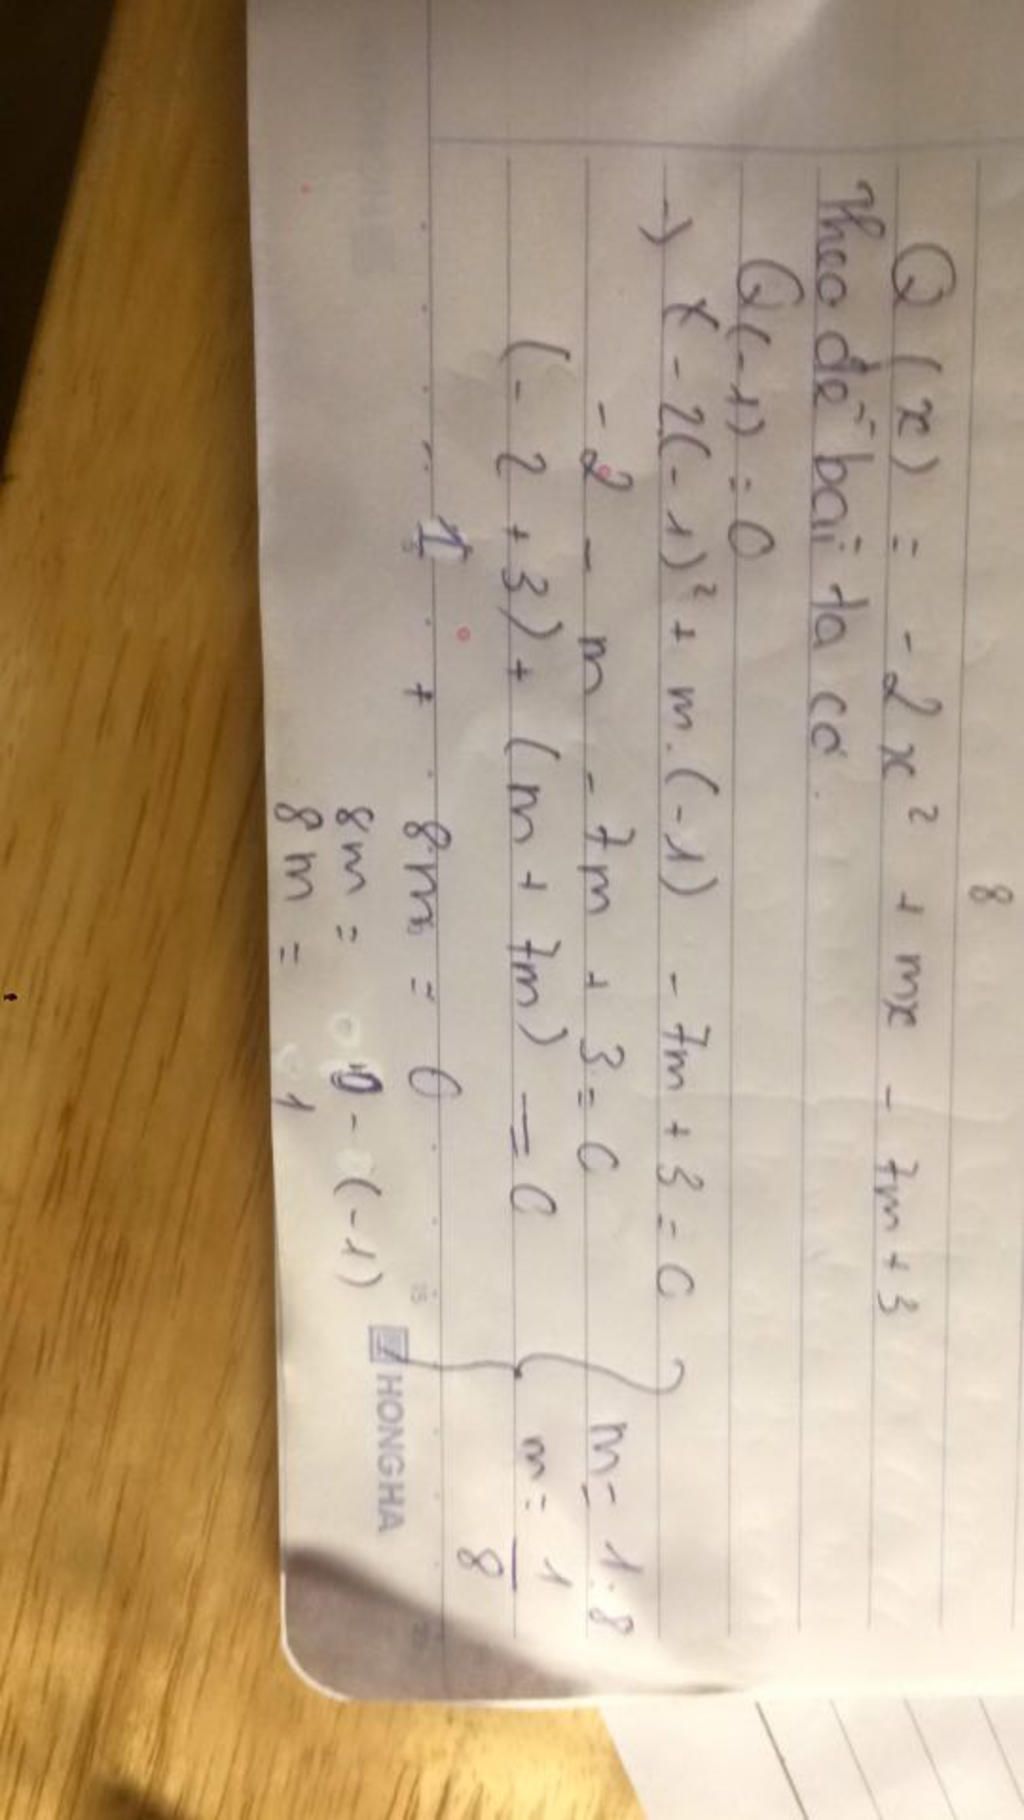 8
Q(x) = -2x² + mx - 7m + 3
Theo đề bài ta có.
Q(-1) = 0
→ x - 2(-1)² + m.(-1) - 7m + 3 = 0
- 2 - m - 7m + 3 = 0
(- 2 + 3) + (m + 7m) = 0
1 + 8m = 0
8m = 0 - (-1)
8m = 1
m = 1 : 8
m = 1/8
HONG HA